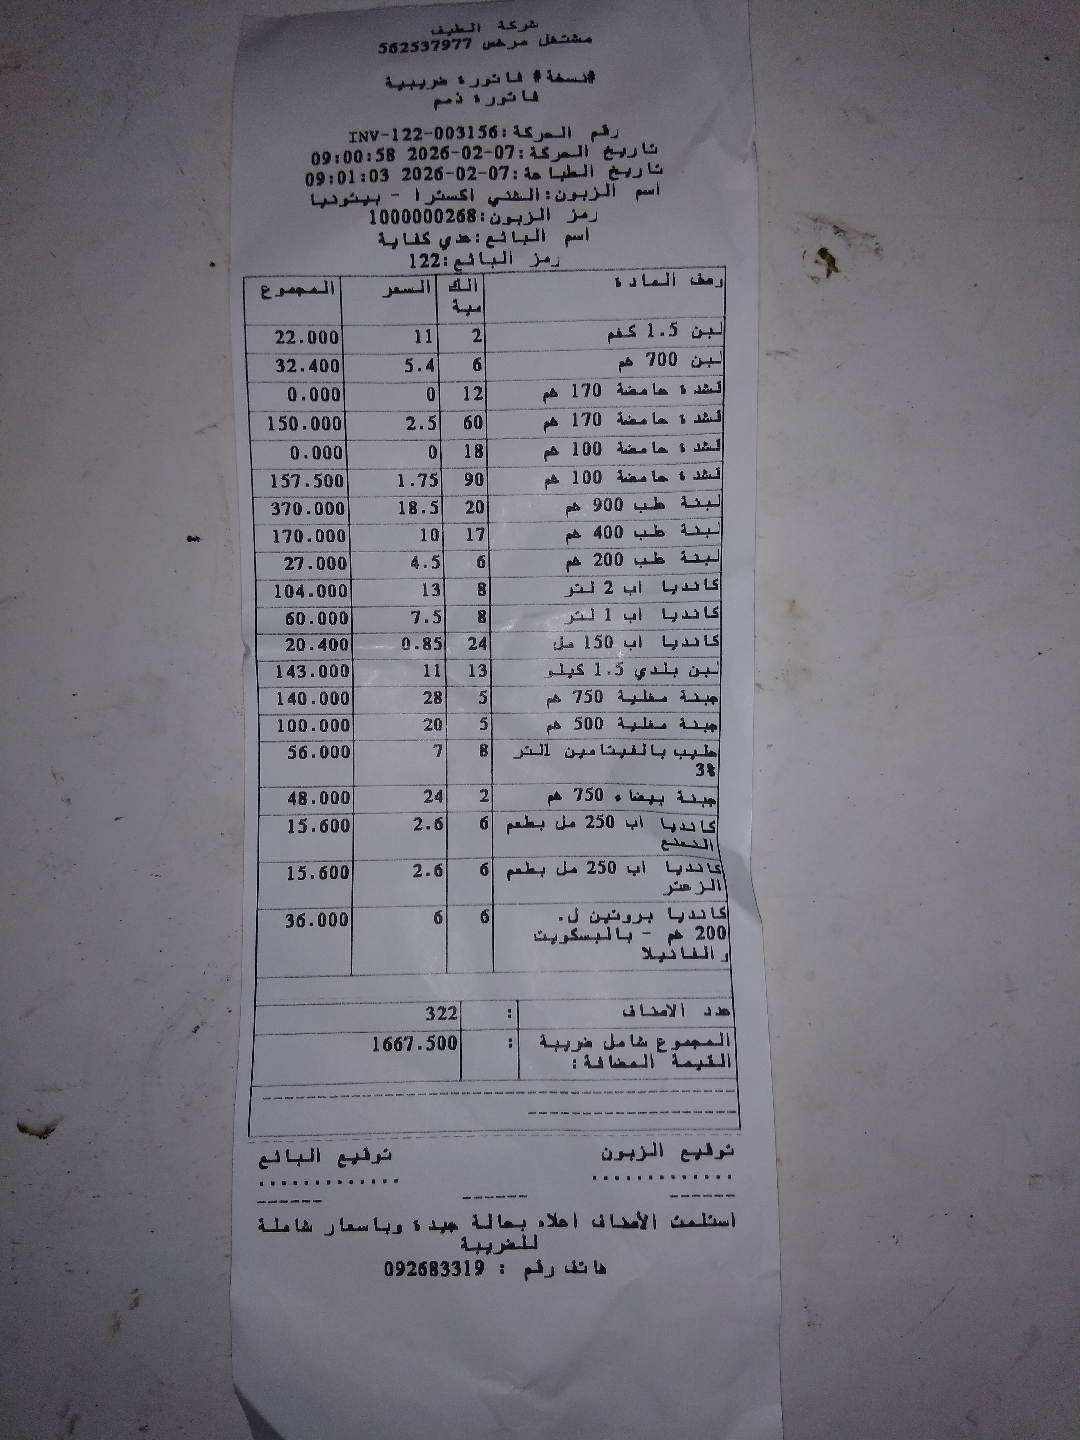 شركة الطيف
مشتغل مرخص 562537977
#نسخة# فاتورة ضريبية
فاتورة ذمم
رقم الحركة:INV-122-003156
تاريخ الحركة:07-02-2026 09:00:58
تاريخ الطباعة:07-02-2026 09:01:03
اسم الزبون:الهني اكسترا - بيتونيا
رمز الزبون:1000000268
اسم البائع:عدي كفاية
رمز البائع:122
وصف المادة الكمية السعر المجموع
لبن 1.5 كغم 2 11 22.000
لبن 700 غم 6 5.4 32.400
قشدة حامضة 170 غم 12 0 0.000
قشدة حامضة 170 غم 60 2.5 150.000
قشدة حامضة 100 غم 18 0 0.000
قشدة حامضة 100 غم 90 1.75 157.500
لبنة علب 900 غم 20 18.5 370.000
لبنة علب 400 غم 17 10 170.000
لبنة علب 200 غم 6 4.5 27.000
كانديا اب 2 لتر 8 13 104.000
كانديا اب 1 لتر 8 7.5 60.000
كانديا اب 150 مل 24 0.85 20.400
لبن بلدي 1.5 كيلو 13 11 143.000
جبنة مغلية 750 غم 5 28 140.000
جبنة مغلية 500 غم 5 20 100.000
حليب بالفيتامين 1لتر 8 7 56.000
3%
جبنة بيضاء 750 غم 2 24 48.000
كانديا اب 250 مل بطعم 6 2.6 15.600
النعنع
كانديا اب 250 مل بطعم 6 2.6 15.600
الزعتر
كانديا بروتين ل. 6 6 36.000
200 غم - بالبسكويت
والفانيلا
عدد الاصناف : 322
المجموع شامل ضريبة : 1667.500
القيمة المضافة:
توقيع الزبون توقيع البائع
استلمت الأصناف اعلاه بحالة جيدة وباسعار شاملة
للضريبة
هاتف رقم : 092683319